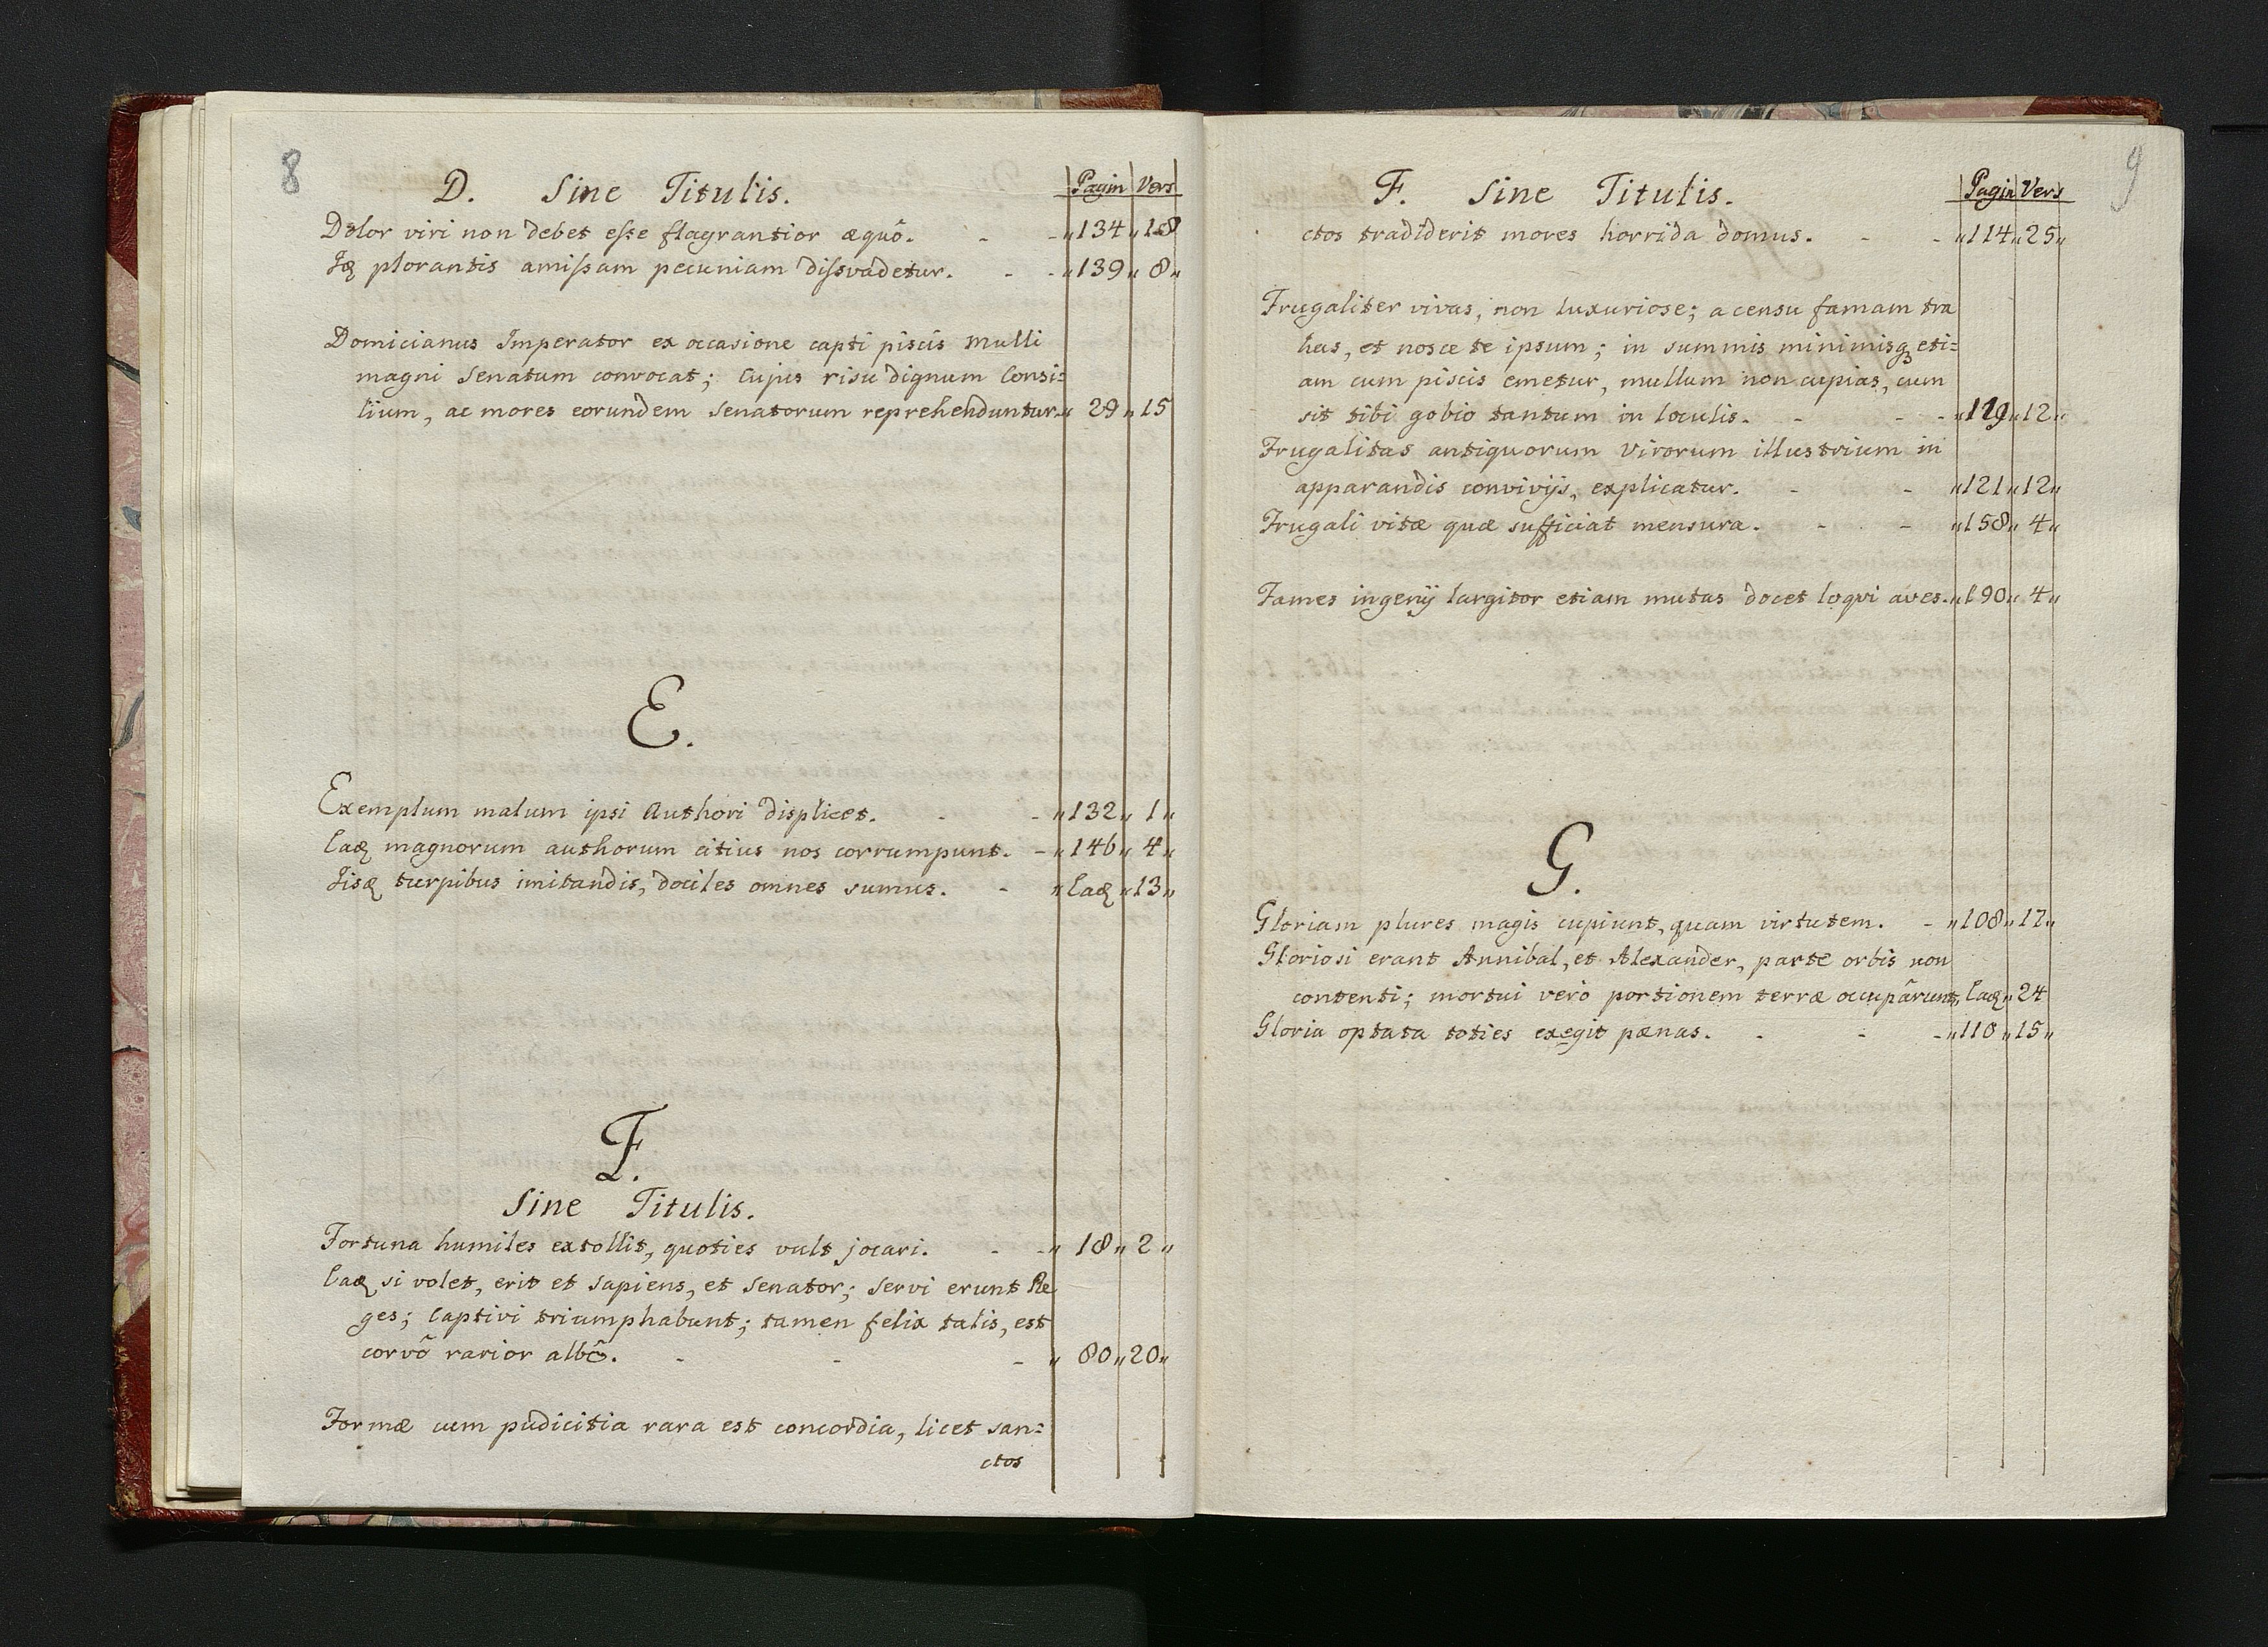 8
D. Sine Titulis. Pagin Vers
Dolor viri non debet esse flagrantior æquô. - - „134„18
Iꝫ plorantis amissam pecuniam dissvadetur. - - „139„8„
Domicianus Imperator ex occasione capti piscis mulli
magni Senatum convocat; Cujus risu dignum Consi=
lium, ac mores eorundem Senatorum reprehenduntur. „29„15
E.
Exemplum malum ipsi Authori displicet. - - „132„1„
Eaꝫ magnorum authorum citius nos corrumpunt. - „146„4„
Iisꝫ turpibus imitandis, dociles omnes sumus. - „Eaꝫ„13„
F.
Sine Titulis.
Fortuna humiles extollit, quoties vult jocari. - - „18„2„
Eaꝫ si volet, erit et sapiens, et senator; servi erunt Re
ges; Captivi triumphabunt; tamen felix talis, est
corvô rarior albô. - - - „80„20„
Formæ cum pudicitia rara est concordia, licet san=
ctos
9
F. Sine Titulis. Pagin Vers
ctos tradiderit mores horrida domus. - - „114„25„
Frugaliter vivas, non luxuriose; a censu famam tra
has, et nosce te ipsum; in summis minimisqꝫ eti=
am cum piscis emetur, mullum non cupias, cum
sit tibi gobio tantum in loculis. - - - „119„12„
Frugalitas antiquorum Virorum illustrium in
apparandis convivijs, explicatur. - - „121„12„
Frugali vitæ quæ sufficiat mensura. - - „158„4„
Fames ingenij largitor etiam mutas docet loqvi aves. „190„4„
G.
Gloriam plures magis cupiunt, quam virtutem. - „108„17„
Gloriosi erant Annibal, et Alexander, parte orbis non
contenti; mortui verò portionem terræ occupârunt, Eaꝫ„24
Gloria optata toties exegit pænas. - - - „110„15„